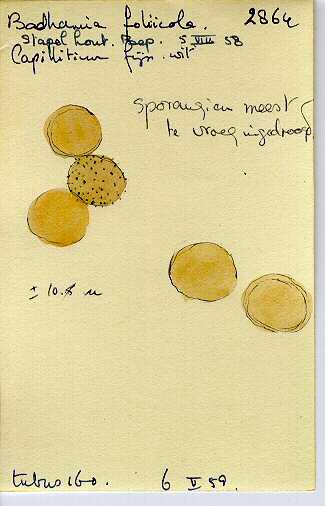 Badhamia foliicola. 2864
Stapel hout. Paap. 5 VIII 58
Capillitium fijn. wit
Sporangien meest
te vroeg ingedroogd
± 10.8 u
tubus 160. 6 V 59.